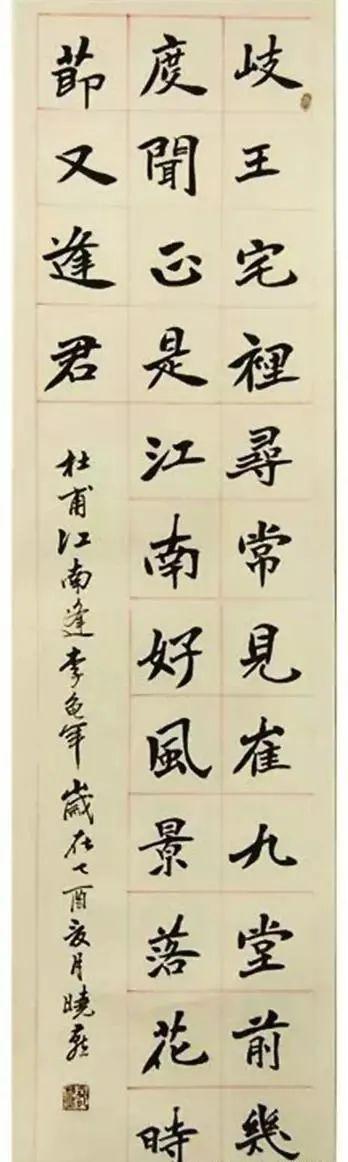 岐王宅裡尋常見崔九堂前幾
度聞正是江南好風景落花時
節又逢君
杜甫江南逢李龜年歲在乙酉夏月曉